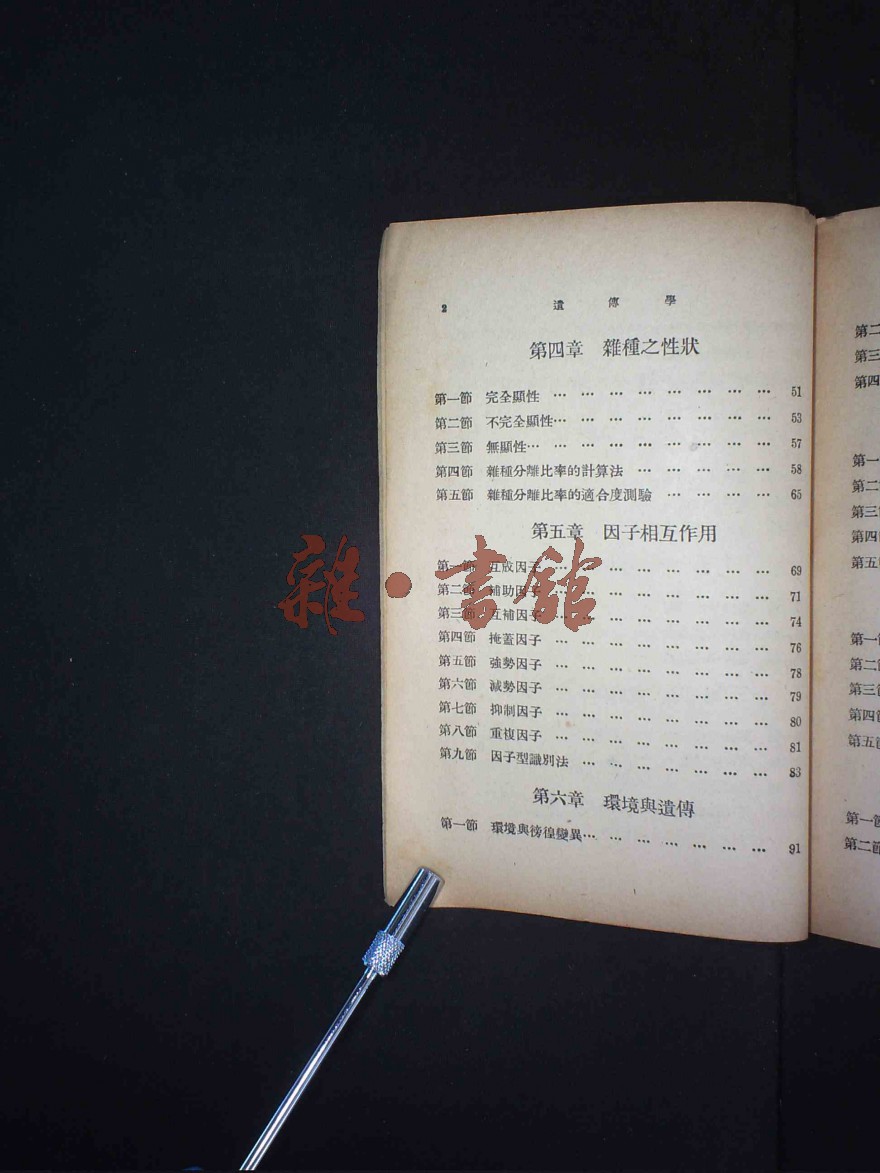 2 遺傳學
第四章 雜種之性狀
第一節 完全顯性 … … … … … … … … 51
第二節 不完全顯性… … … … … … … … 53
第三節 無顯性… … … … … … … … … 57
第四節 雜種分離比率的計算法 … … … … … 58
第五節 雜種分離比率的適合度測驗 … … … … 65
第五章 因子相互作用
第一節 因子 … … … … … … … … 69
第二節 補助因子 … … … … … … … … 71
第三節 互補因子 … … … … … … … … 74
第四節 掩蓋因子 … … … … … … … … 76
第五節 強勢因子 … … … … … … … … 78
第六節 減勢因子 … … … … … … … … 79
第七節 抑制因子 … … … … … … … … 80
第八節 重複因子 … … … … … … … … 81
第九節 因子型識別法 … … … … … … … 83
第六章 環境與遺傳
第一節 環境與徬徨變異… … … … … … … 91
雜·書館
第二
第三
第四
第一
第二
第三
第四
第五
第一
第二
第三
第四
第五
第一
第二